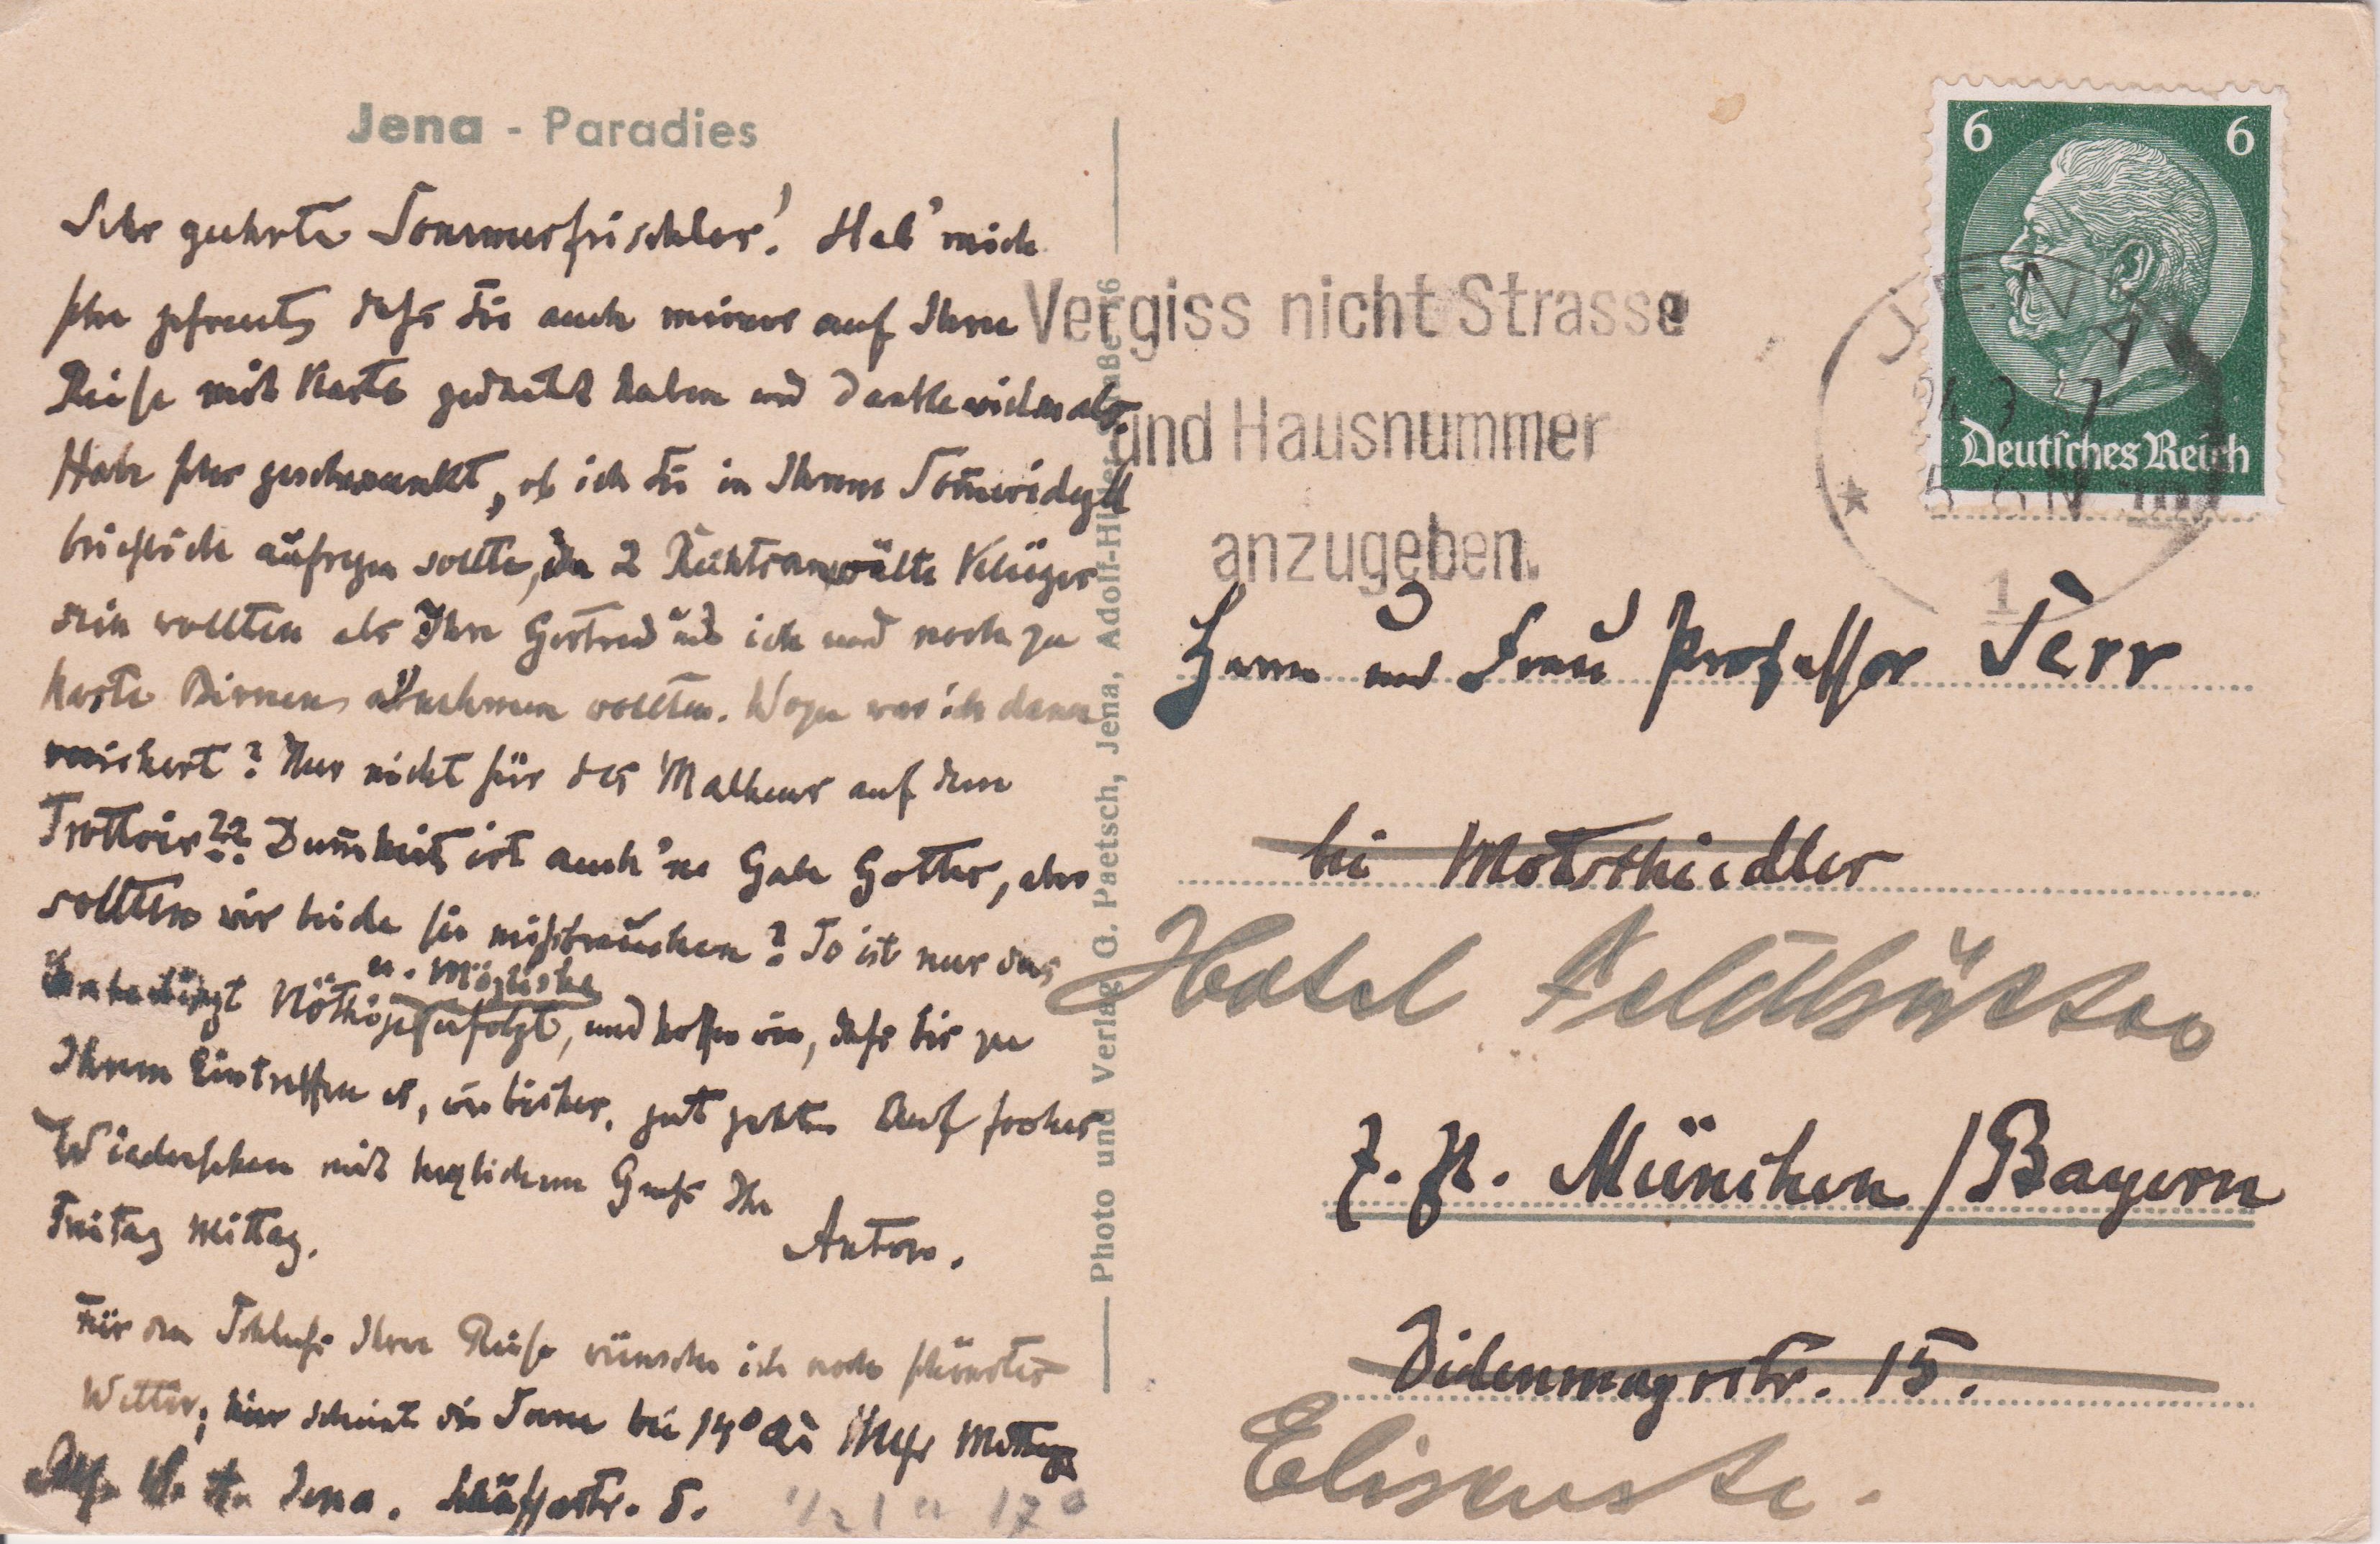 Jena - Paradies
Sehr geehrte Sommerfrischler! Hab' mich
sehr gefreut, dass Sie auch meiner auf Ihrer
Reise mit Karte gedacht haben und danke vielmals.
Habe sehr geschwankt, ob ich Sie in Ihrem
brieflich aufregen sollte, da 2 Rechtsanwälte klüger
sein wollten als Ihre Gertrud und ich und noch zu
ich denn
versichert? Nur nicht für das Malheur auf dem
Trottoir?? Dummheit ist auch 'ne Gabe Gottes, aber
sollten wir beide sie missbrauchen? So ist nur das
u. Mögliche
Unbedingt Nötige erfolgt, und hoffen wir, dass bis zu
Ihrem Eintreffen es, wie bisher, gut geht. Auf frohes
Wiedersehen mit herzlichem Gruss Ihr
Anton.
Freitag Mittag.
Für den Schluss Ihrer Reise wünsche ich noch schönstes
Wetter, hier scheint die Sonne bei 14°
Jena. Schäfferstr. 5.
1/2 1 17°
Photo und Verlag G. Paetsch, Jena, Adolf-Hitler-Straße 16
Vergiss nicht Strasse
und Hausnummer
anzugeben.
6 6
Deutsches Reich
JENA
1
Herrn und Frau Professor Serr
bei
Hotel
z. Zt. München / Bayern
15.